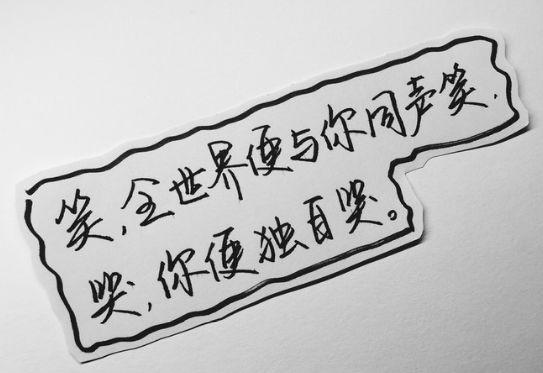 笑,全世界便与你同声笑.
哭,你便独自哭。